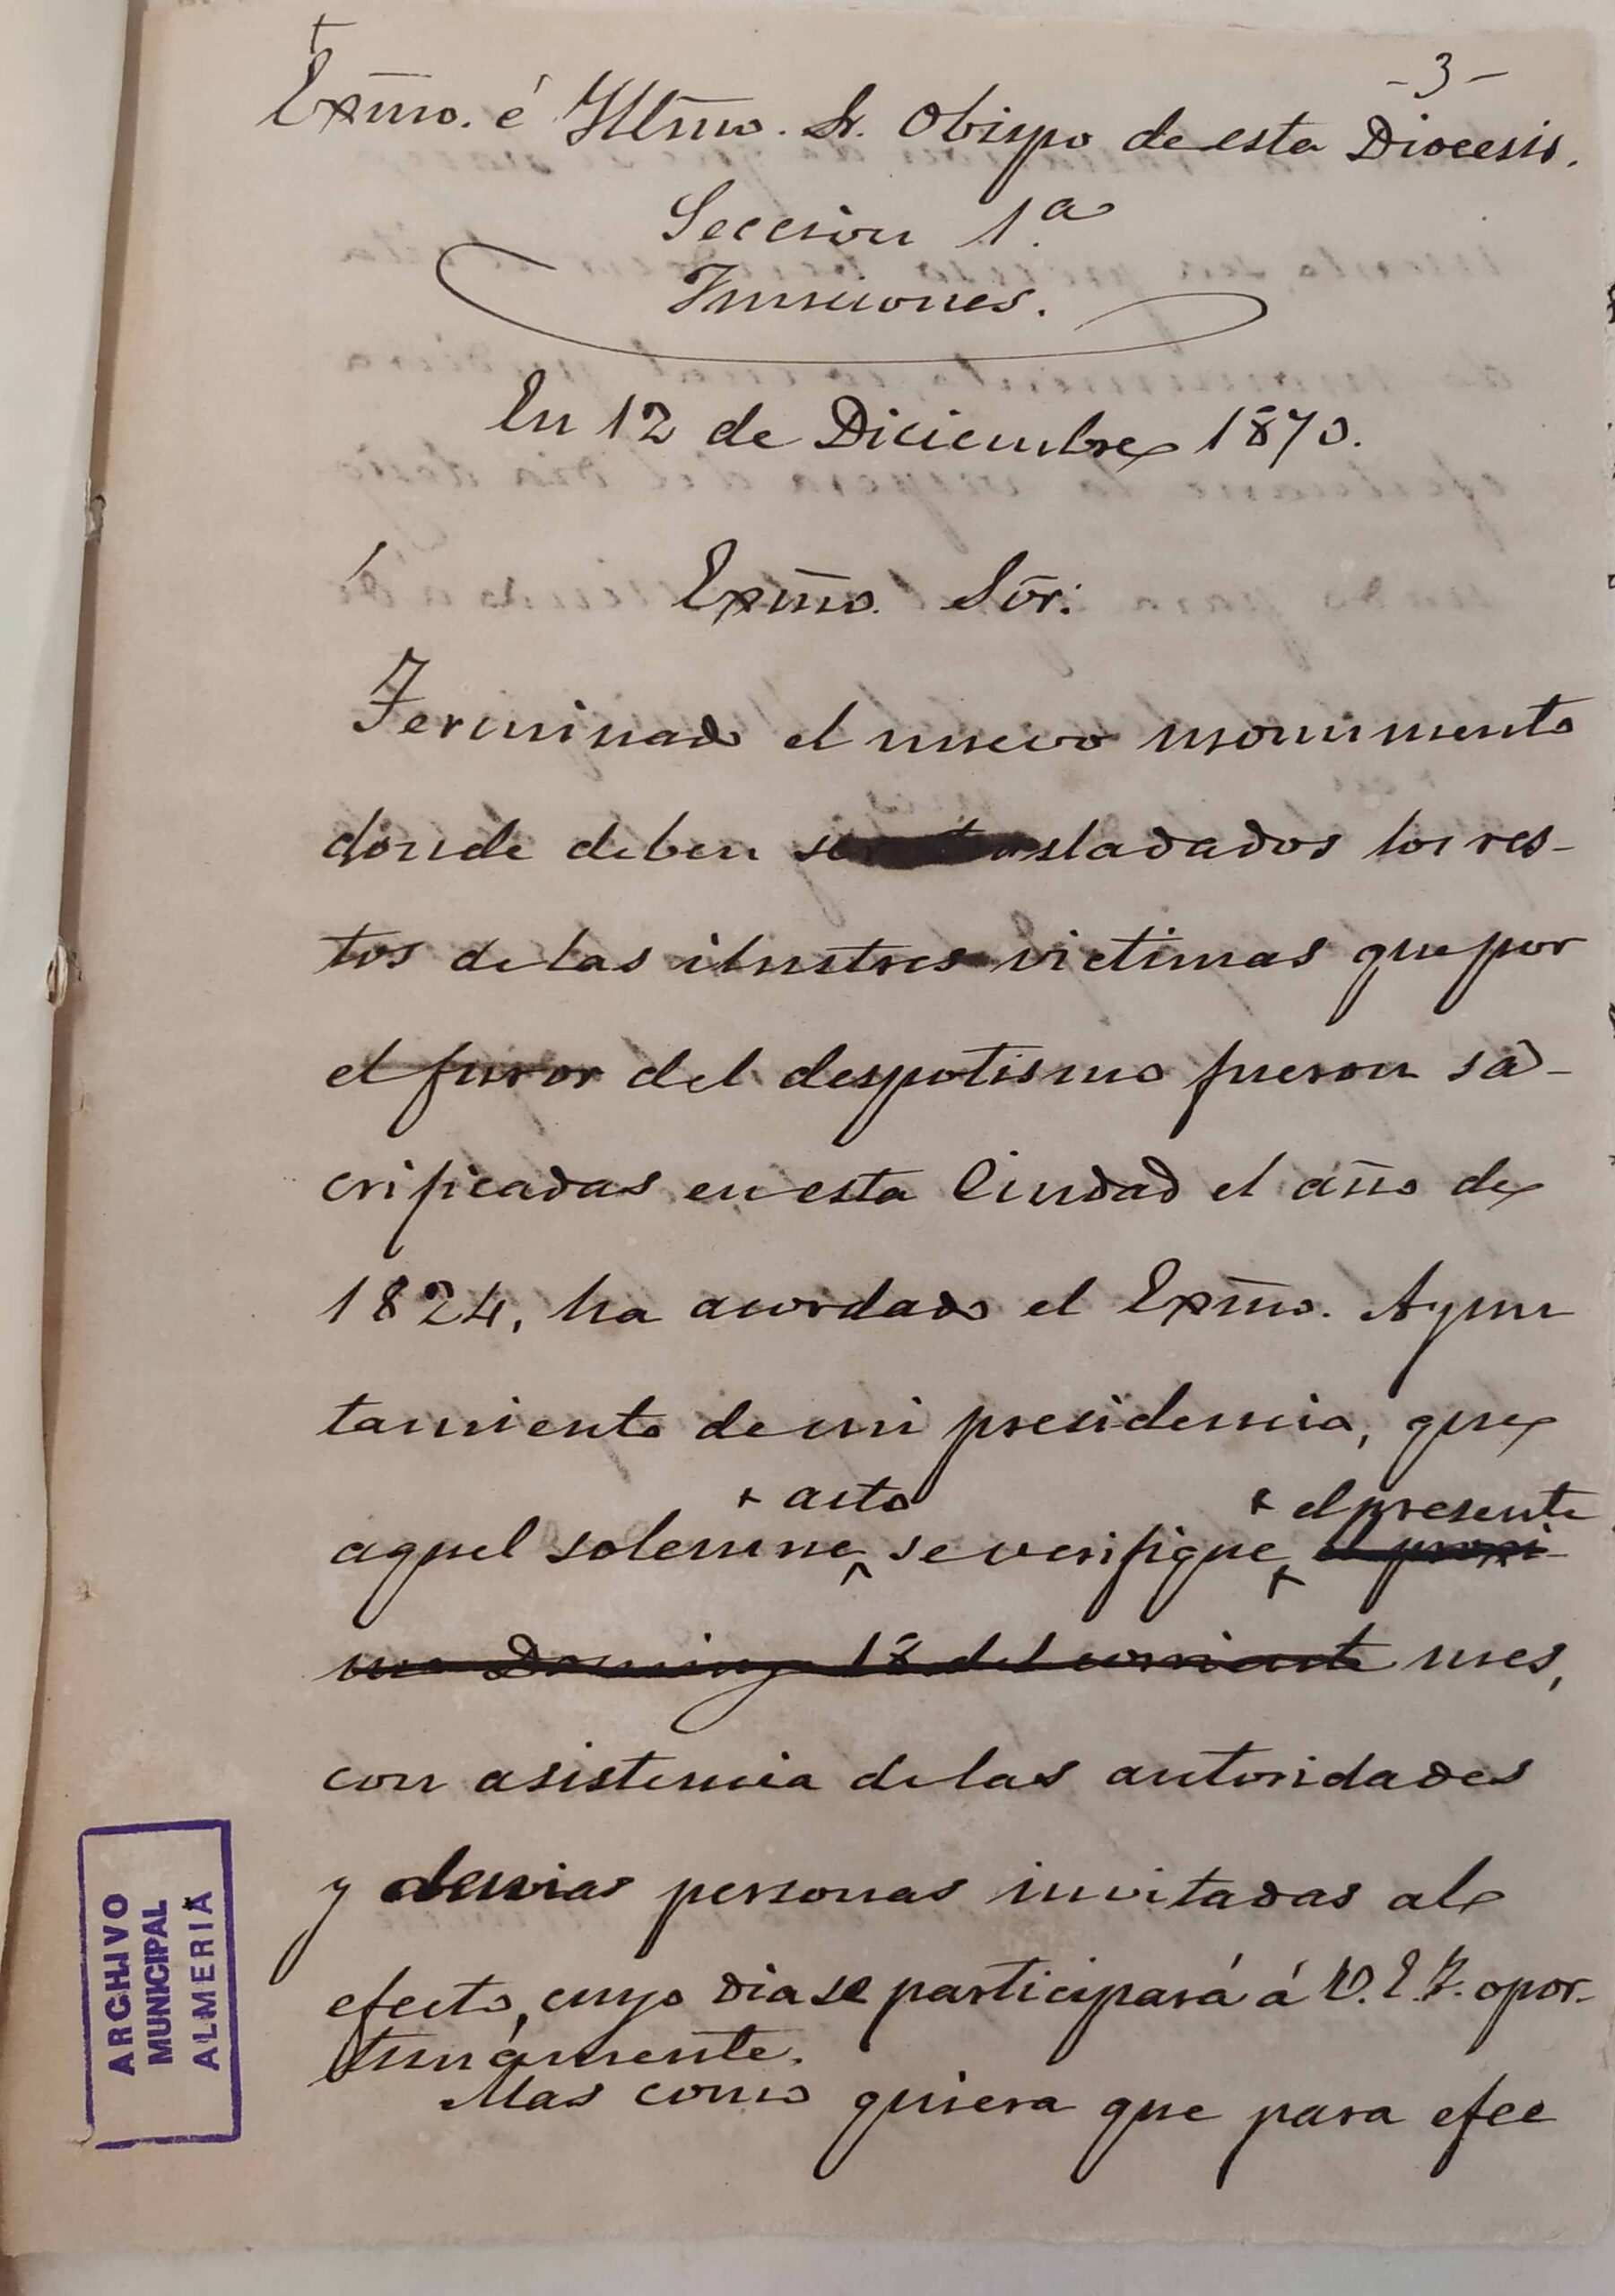 -3-
Exmo. é Illmo. Sr. Obispo de esta Diocesis.
Seccion 1.a
Funciones.
En 12 de Diciembre 1870.
Exmo. Sor:
Terminado el nuevo monumento
donde deben ser trasladados los res-
tos de las ilustres victimas que por
el furor del despotismo fueron sa-
crificadas en esta Ciudad el año de
1824, ha acordado el Exmo. Ayun
tamiento de mi presidencia, que
+ acto + el presente
aquel solemne se verifique el proxi-
mo Domingo 18 del corriente mes,
con asistencia de las autoridades
y demas personas invitadas al
efecto, cuyo dia se participará á V.E.I. opor-
tunamente.
Mas como quiera que para efec
ARCHIVO
MUNICIPAL
ALMERIA